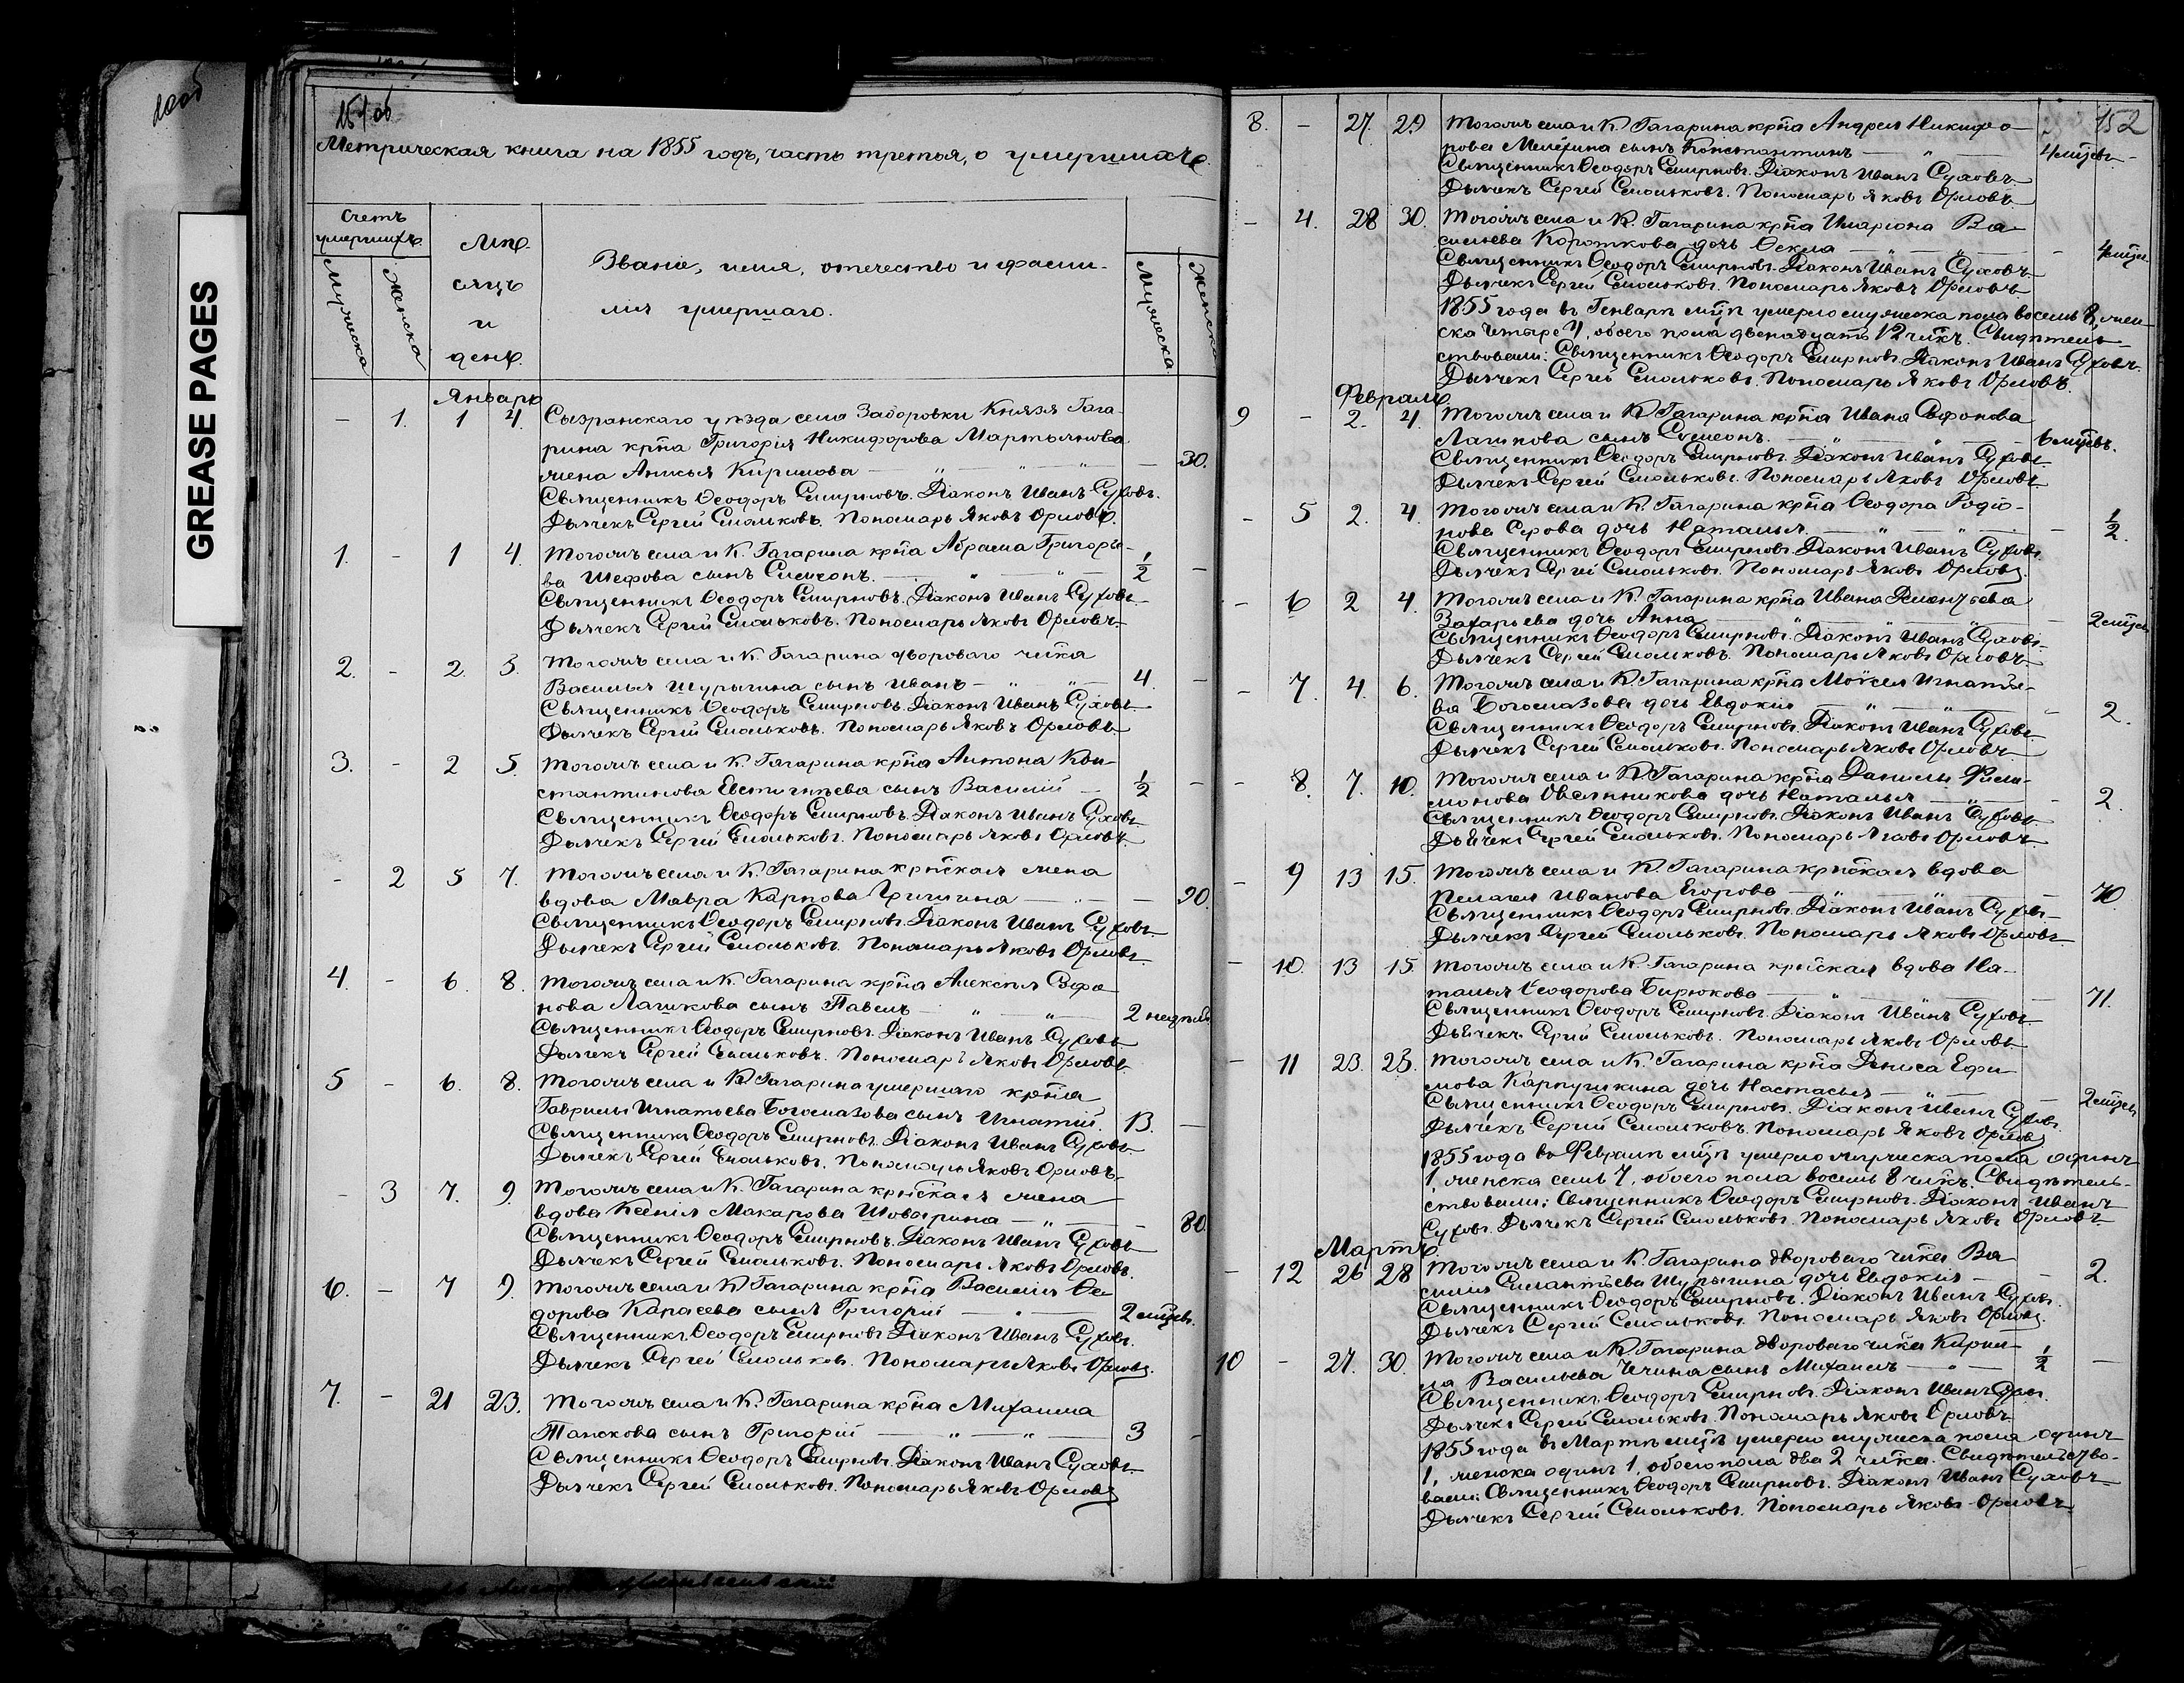 GREASE PAGES
151 об
Метрическая книга на 1855 годъ, часть третья, о умершихъ.
Счетъ умершихъ.
Мужеска
Женска
Мѣсяцъ и день.
Званіе, имя, отечество и фамилія умершаго.
Мужеска
Женска
Январь
- 1. 1 4. Сызранскаго уѣзда села Заборовки Князя Гага-
рина крт̃на Григорія Никифорова Мартьянова
жена Анисья Кирилова — 30.
Священникъ Ѳеодоръ Смирновъ. Діаконъ Иванъ Суховъ.
Дьячекъ Сергей Смольковъ. Пономарь Яковъ Орловъ.
1. - 1 4. Тогожъ села и К. Гагарина крт̃на Абрама Григорье-
ва Шефова сынъ Симеонъ. 1/2 -
Священникъ Ѳеодоръ Смирновъ. Діаконъ Иванъ Суховъ.
Дьячекъ Сергій Смольковъ. Пономарь Яковъ Орловъ.
2. - 2. 5. Тогожъ села и К. Гагарина двороваго чл̃ка
Василья Шурыгина сынъ Иванъ — 4. -
Священникъ Ѳеодоръ Смирновъ. Діаконъ Иванъ Суховъ.
Дьячекъ Сергій Смольковъ. Пономарь Яковъ Орловъ.
3. - 2 5. Тогожъ села и К. Гагарина крт̃на Антона Кон-
стантинова Евстигнѣева сынъ Василій — 1/2 -
Священникъ Ѳеодоръ Смирновъ. Діаконъ Иванъ Суховъ.
Дьячекъ Сергій Смольковъ. Пономарь Яковъ Орловъ.
- 2 5 7. Тогожъ села и К. Гагарина крт̃нская жена
вдова Мавра Карпова Гришина — 90.
Священникъ Ѳеодоръ Смирновъ. Діаконъ Иванъ Суховъ.
Дьячекъ Сергій Смольковъ. Пономарь Яковъ Орловъ.
4. - 6. 8. Тогожъ села и К. Гагарина крт̃на Алексѣя Софо-
нова Лашкова сынъ Павелъ 2 недѣль
Священникъ Ѳеодоръ Смирновъ. Діаконъ Иванъ Суховъ.
Дьячекъ Сергей Смольковъ. Пономарь Яковъ Орловъ.
5 - 6. 8. Тогожъ села и К. Гагарина умершаго крт̃на
Гаврилы Игнатьева Богомазова сынъ Игнатій. 13. -
Священникъ Ѳеодоръ Смирновъ. Діаконъ Иванъ Суховъ.
Дьячекъ Сергій Смольковъ. Пономарь Яковъ Орловъ.
- 3 7. 9. Тогожъ села и К. Гагарина крт̃нская жена
вдова Ксенія Макарова Шоварина — 80.
Священникъ Ѳеодоръ Смирновъ. Діаконъ Иванъ Суховъ
Дьячекъ Сергей Смольковъ. Пономарь Яковъ Орловъ.
6. - 7 9. Тогожъ села и К. Гагарина крт̃на Василія Ѳе-
дорова Карасева сынъ Григорій — 2 мц̃евъ.
Священникъ Ѳеодоръ Смирновъ. Діаконъ Иванъ Суховъ.
Дьячекъ Сергей Смольковъ. Пономарь Яковъ Орловъ.
7. - 21 23. Тогожъ села и К. Гагарина крт̃на Михаила
Танскова сынъ Григорій — 3 -
Священникъ Ѳеодоръ Смирновъ. Діаконъ Иванъ Суховъ.
Дьячекъ Сергей Смольковъ. Пономарь Яковъ Орловъ
152
8. - 27. 29 Тогожъ села и К. Гагарина крт̃на Андрея Никифо-
рова Мелехина сынъ Константинъ — 4 мц̃евъ -
Священникъ Ѳеодоръ Смирновъ. Діаконъ Иванъ Суховъ.
Дьячекъ Сергей Смольковъ. Пономарь Яковъ Орловъ.
- 4. 28 30. Тогожъ села и К. Гагарина крт̃на Иларіона Ва-
сильева Короткова дочь Ѳекла — 4 мц̃ев.
Священникъ Ѳеодоръ Смирновъ. Діаконъ Иванъ Суховъ.
Дьячекъ Сергей Смольковъ. Пономарь Яковъ Орловъ
1855 года въ Генварѣ мц̃ѣ умерло мужеска пола восемь 8, жен-
ска четыре 4, обоего пола двенадцать 12 чл̃къ. Свидѣтель-
ствовали: Священникъ Ѳеодоръ Смирновъ. Діаконъ Иванъ Суховъ.
Дьячекъ Сергей Смольковъ. Пономарь Яковъ Орловъ.
Февраль
9 - 2. 4. Тогожъ села и К. Гагарина крт̃на Ивана Софонова
Лашкова сынъ Симеонъ. — 6 мц̃евъ.
Священникъ Ѳеодоръ Смирновъ. Діаконъ Иванъ Суховъ.
Дьячекъ Сергей Смольковъ. Пономарь Яковъ Орловъ.
- 5 2. 4. Тогожъ села и К. Гагарина крт̃на Ѳеодора Родіо-
нова Серова дочь Наталья — 1/2.
Священникъ Ѳеодоръ Смирновъ. Діаконъ Иванъ Суховъ
Дьячекъ Сергій Смольковъ. Пономарь Яковъ Орловъ.
- 6 2 4. Тогожъ села и К. Гагарина крт̃на Ивана Дементьева
Захарьева дочь Анна — 2 мц̃евъ
Священникъ Ѳеодоръ Смирновъ. Діаконъ Иванъ Суховъ.
Дьячекъ Сергей Смольковъ. Пономарь Яковъ Орловъ.
- 7. 4. 6. Тогожъ села и К. Гагарина крт̃на Моѵсея Игнатье-
ва Богомазова дочь Евдокія — 2.
Священникъ Ѳеодоръ Смирновъ. Діаконъ Иванъ Суховъ.
Дьячекъ Сергей Смольковъ. Пономарь Яковъ Орловъ
- 8. 7. 10. Тогожъ села и К. Гагарина крт̃на Данилы Фили-
монова Овсянникова дочь Наталья — 2.
Священникъ Ѳеодоръ Смирновъ. Діаконъ Иванъ Суховъ.
Дьячекъ Сергей Смольковъ. Пономарь Яковъ Орловъ
- 9 13 15. Тогожъ села и К. Гагарина крт̃нская вдова
Пелагея Иванова Егорова — 70
Священникъ Ѳеодоръ Смирновъ. Діаконъ Иванъ Суховъ.
Дьячекъ Сергей Смольковъ. Пономарь Яковъ Орловъ
- 10. 13 15. Тогожъ села и К. Гагарина крт̃нская вдова На-
талья Ѳеодорова Бирюкова — 71.
Священникъ Ѳеодоръ Смирновъ. Діаконъ Иванъ Суховъ.
Дьячекъ Сергій Смольковъ. Пономарь Яковъ Орловъ.
- 11 23. 25. Тогожъ села и К. Гагарина крт̃на Дениса Ефи-
мова Карпушкина дочь Настасья — 2 мц̃евъ
Священникъ Ѳеодоръ Смирновъ. Діаконъ Иванъ Суховъ.
Дьячекъ Сергій Смольковъ. Пономарь Яковъ Орловъ
1855 года въ Февралѣ мц̃ѣ умерло мужеска пола одинъ
1, женска семь 7, обоего пола восемь 8 чл̃къ. Свидѣтель-
ствовали: Священникъ Ѳеодоръ Смирновъ. Діаконъ Иванъ
Суховъ. Дьячекъ Сергей Смольковъ. Пономарь Яковъ Орловъ
Мартъ.
- 12 26 28 Тогожъ села и К. Гагарина двороваго чл̃ка Ва-
силія Силантьева Шурыгина дочь Евдокія — 2.
Священникъ Ѳеодоръ Смирновъ. Діаконъ Иванъ Суховъ.
Дьячекъ Сергей Смольковъ. Пономарь Яковъ Орловъ.
10 - 27. 30. Тогожъ села и К. Гагарина двороваго чл̃ка Кирил-
ла Васильева Чечина сынъ Михаилъ — 1/2 —
Священникъ Ѳеодоръ Смирновъ. Діаконъ Иванъ Суховъ.
Дьячекъ Сергей Смольковъ. Пономарь Яковъ Орловъ.
1855 года въ Мартѣ мц̃ѣ умерло мужеска пола одинъ
1, женска одинъ 1, обоего пола два 2 чл̃ка. Свидѣтельство-
вали: Священникъ Ѳеодоръ Смирновъ. Діаконъ Иванъ Суховъ.
Дьячекъ Сергій Смольковъ. Пономарь Яковъ Орловъ